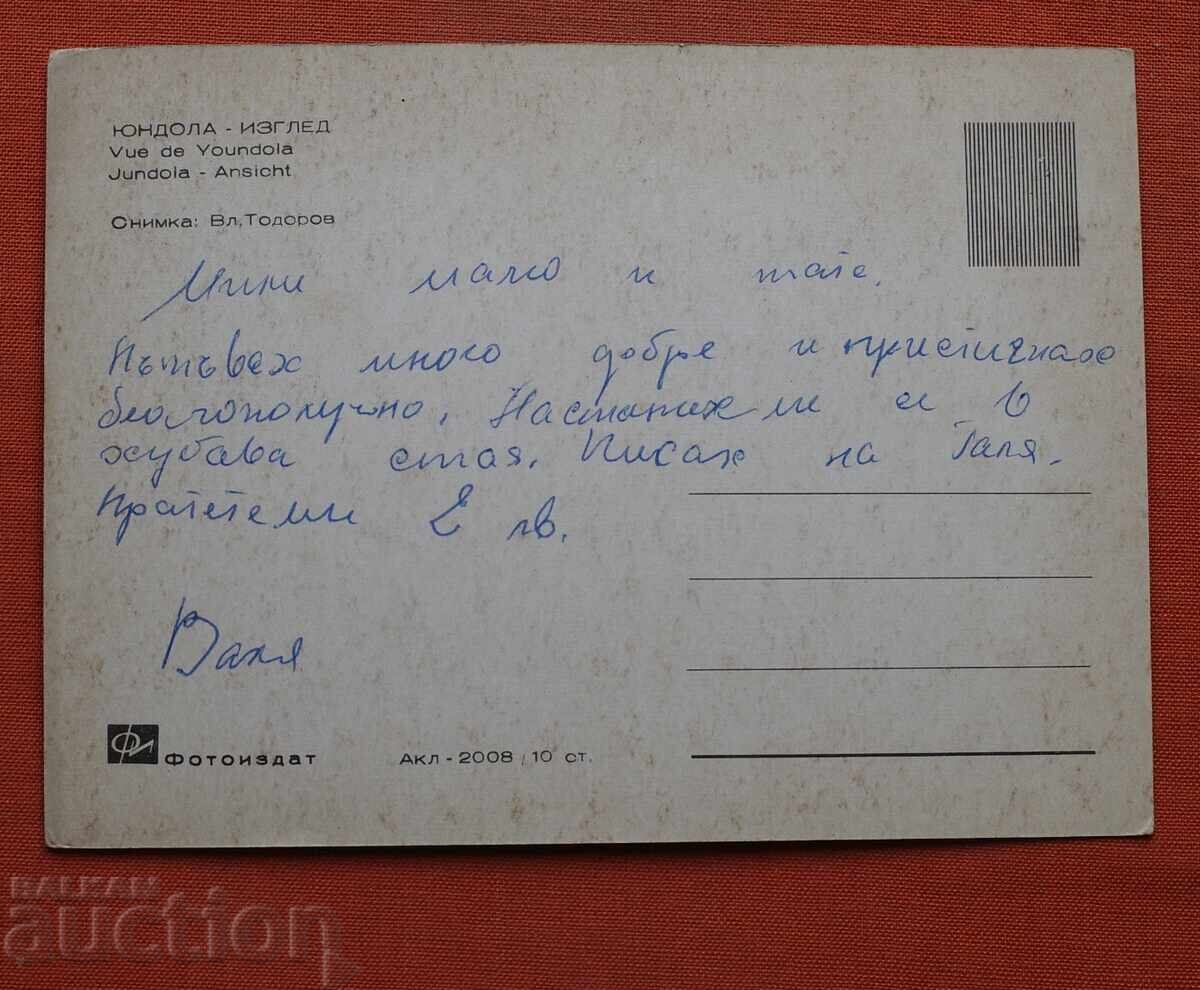 ЮНДОЛА - ИЗГЛЕД
Vue de Youndola
Jundola - Ansicht
Снимка: Вл. Тодоров
Мили мамо и тате.
Пътувах много добре и пристигнах
благополучно. Настаниха ме в
хубава стая. Писах на Галя.
Пратете ми 2 лв.
Ваня
ФИ Фотоиздат Акл - 2008 / 10 ст.
BALKAN
auction